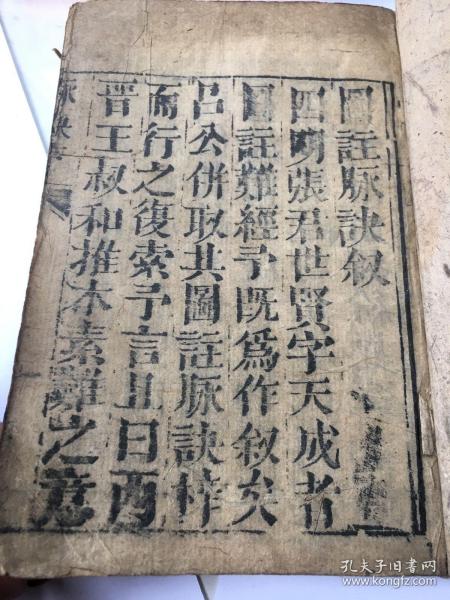 圖註脉訣叙
四明張君世賢字天成者
圖註難經予既爲作叙矣
呂公併取其圖註脉訣梓
而行之復索予言且曰西
晋王叔和推本素難之意
孔夫子旧书网
www.kongfz.com